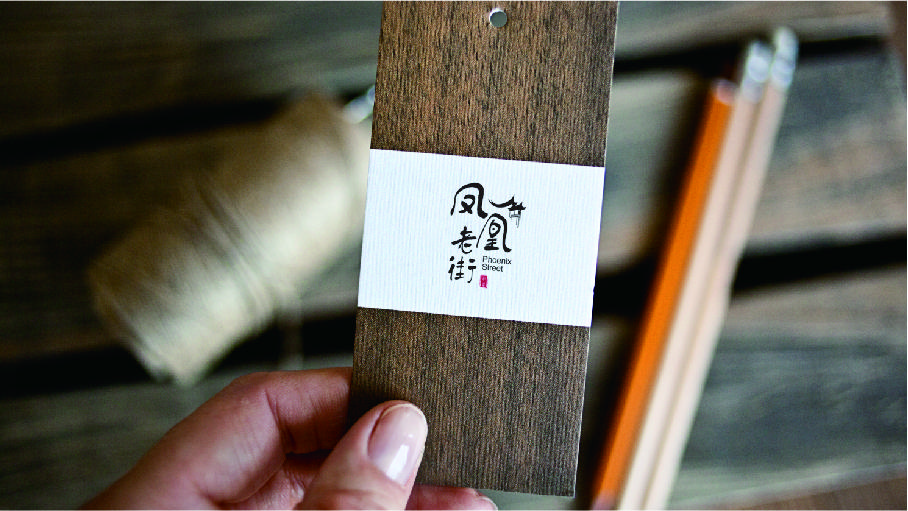 凤凰
老街
Phoenix
Street